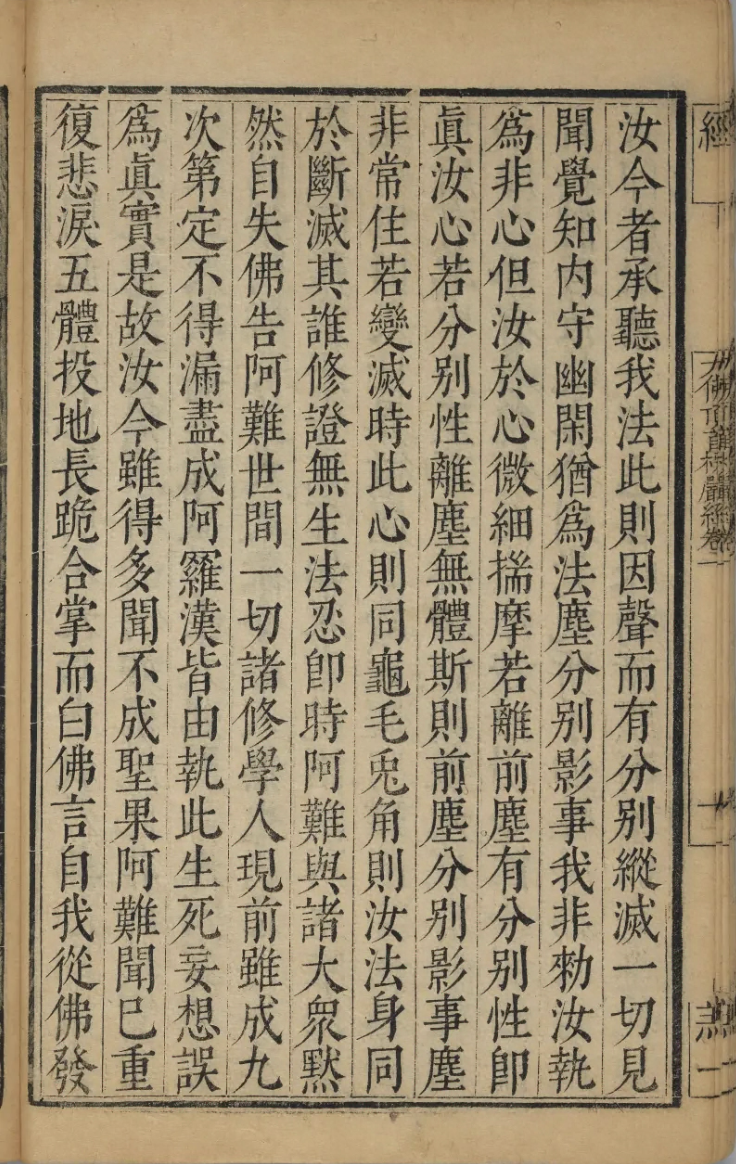 汝今者承聽我法此則因聲而有分別縱滅一切見
聞覺知內守幽閑猶為法塵分別影事我非勑汝執
為非心但汝於心微細揣摩若離前塵有分別性即
真汝心若分別性離塵無體斯則前塵分別影事塵
非常住若變滅時此心則同龜毛兎角則汝法身同
於斷滅其誰修證無生法忍即時阿難與諸大眾默
然自失佛告阿難世間一切諸修學人現前雖成九
次第定不得漏盡成阿羅漢皆由執此生死妄想誤
為眞實是故汝今雖得多聞不成聖果阿難聞已重
復悲淚五體投地長跪合掌而白佛言自我從佛發
經